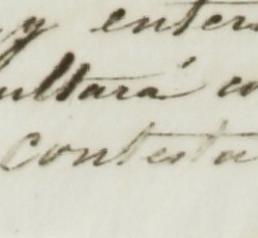 y enter
ultará co
contesta